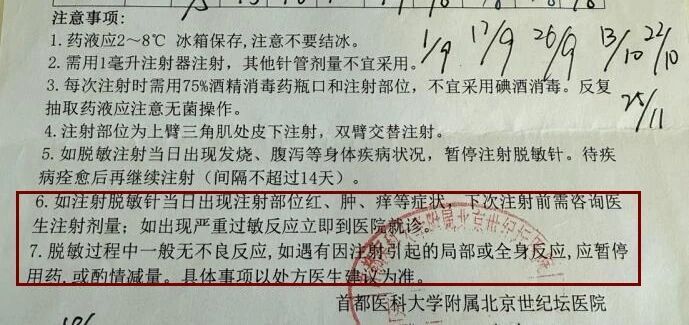 注意事项:
1. 药液应2~8℃ 冰箱保存,注意不要结冰。
2. 需用1毫升注射器注射，其他针管剂量不宜采用。
3. 每次注射时需用75%酒精消毒药瓶口和注射部位，不宜采用碘酒消毒。反复
抽取药液应注意无菌操作。
4. 注射部位为上臂三角肌处皮下注射，双臂交替注射。
5. 如脱敏注射当日出现发烧、腹泻等身体疾病状况，暂停注射脱敏针。待疾
病痊愈后再继续注射（间隔不超过14天）。
6. 如注射脱敏针当日出现注射部位红、肿、痒等症状，下次注射前需咨询医
生注射剂量；如出现严重过敏反应立即到医院就诊。
7. 脱敏过程中一般无不良反应，如遇有因注射引起的局部或全身反应,应暂停
用药,或酌情减量。具体事项以处方医生建议为准。
首都医科大学附属北京世纪坛医院
1/9 17/9 26/9 13/10 22/10
25/11